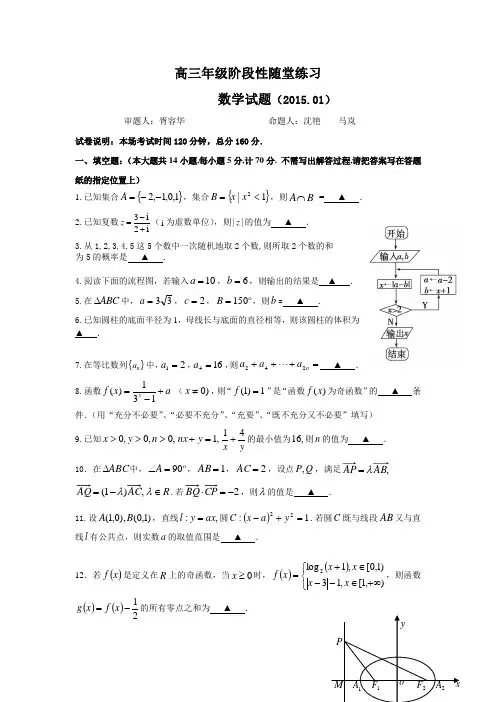 高三年级阶段性随堂练习
数学试题（2015.01）
审题人：胥容华 命题人：沈艳 马岚
试卷说明：本场考试时间120分钟，总分160分．
一、填空题：（本大题共14小题，每小题5分，计70分．不需写出解答过程，请把答案写在答题
纸的指定位置上）
1.已知集合A={-2,-1,0,1}，集合B={x|x²<1}，则A∩B = ▲ ．
2.已知复数z=(3-i)/(2+i)（i为虚数单位），则|z|的值为 ▲ ．
3.从1,2,3,4,5这5个数中一次随机地取2个数,则所取2个数的和
为5的概率是 ▲ ．
4.阅读下面的流程图，若输入a=10，b=6，则输出的结果是 ▲ ．
5.在ΔABC中，a=3√3，c=2，B=150°，则b= ▲ ．
6.已知圆柱的底面半径为1，母线长与底面的直径相等，则该圆柱的体积为
▲ ．
7.在等比数列{aₙ}中，a₁=2，a₄=16，则a₂+a₄+⋯+a₂ₙ= ▲ ．
8.函数f(x)=1/(3ˣ-1)+a （x≠0)，则“f(1)=1”是“函数f(x)为奇函数”的 ▲ 条
件．（用“充分不必要”、“必要不充分”、“充要”、“既不充分又不必要”填写）
9.已知x>0,y>0,n>0,nx+y=1,1/x+4/y的最小值为16,则n的值为 ▲ ．
10．在ΔABC中，∠A=90°，AB=1，AC=2，设点P,Q，满足AP=λAB,
AQ=(1-λ)AC,λ∈R．若BQ·CP=-2，则λ的值是 ▲ ．
11.设A(1,0),B(0,1)，直线l:y=ax,圆C:(x-a)²+y²=1．若圆C既与线段AB又与直
线l有公共点，则实数a的取值范围是 ▲ ．
12．若f(x)是定义在R上的奇函数，当x≥0时，f(x)={log₂(x+1),x∈[0,1) |x-3|-1,x∈[1,+∞)，则函数
g(x)=f(x)-1/2的所有零点之和为 ▲ ．
开始
输入a,b
x←|a-b|
a←a-2
b←x+1
x>2
Y
N
输出x
结束
y
P
M A₁ F₁ o F₂ A₂ x